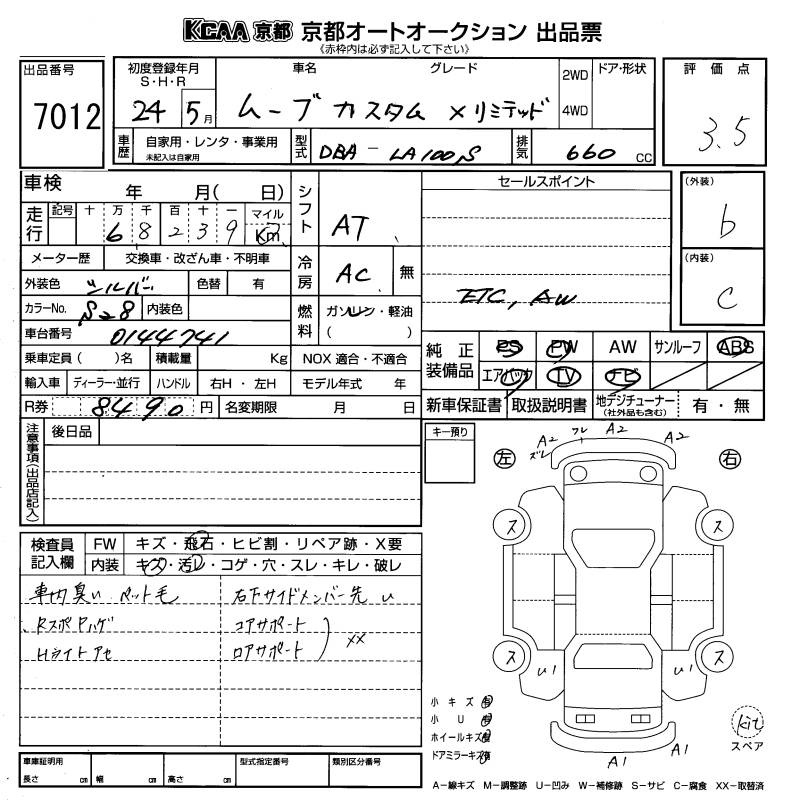 KCAA 京都 京都オートオークション 出品票
《赤枠内は必ず記入して下さい》
出品番号
7012
初度登録年月
S・H・R
24 5月
車名
グレード
ムーブ カスタム X リミテッド
2WD
4WD
ドア・形状
評価点
3.5
車歴
自家用・レンタ・事業用
未記入は自家用
型式
DBA-LA100S
排気
660 CC
車検
年 月( 日)
走行
記号 十 万 千 百 十 一 マイル
6 8 2 3 9 Km
メーター歴
交換車・改ざん車・不明車
外装色
シルバー
色替
有
カラーNo.
S28
内装色
車台番号
0144741
乗車定員( )名
積載量
Kg
輸入車
ディーラー・並行
ハンドル
右H・左H
R券
8490 円
名変期限
月 日
シフト
AT
冷房
AC
無
燃料
ガソリン・軽油
( )
NOX 適合・不適合
モデル年式 年
セールスポイント
ETC, AW
(外装)
b
(内装)
C
純正装備品
PS PW AW サンルーフ ABS
エアバック TV ナビ
新車保証書
取扱説明書
地デジチューナー
(社外品も含む)
有・無
注意事項(出品店記入)
後日品
キー預り
検査員記入欄
FW
キズ・飛石・ヒビ割・リペア跡・X要
内装
キズ・汚レ・コゲ・穴・スレ・キレ・破レ
車内臭い ペット毛
RスポPハゲ
Hライトアセ
右下サイドメンバー先 U
コアサポート
ロアサポート
XX
左
右
A2
ズレ
フレ
A2
A2
ス
ス
ス
ス
U1
U1
A1
A1
小キズ有
小U有
ホイールキズ有
ドアミラーキズ有
kit
スペア
車庫証明用
長さ cm 幅 cm 高さ cm
型式指定番号
類別区分番号
A−線キズ M−調整跡 U−凹み W−補修跡 S−サビ C−腐食 XX−取替済